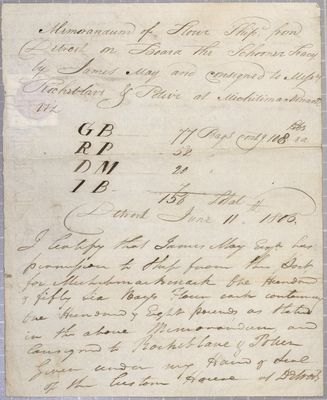 Memorandum of Flour Ship'd from
Detroit on Board the Schooner Tracy
by James May and consigned to Mess
Rocheblave & Polier at Michilimackinac
Viz
GB 77 Bags contg 108 lbs ea
RP 52
DM 20
IB 7
156 Total
Detroit June 11. 1803.
I Certify that James May Esqr has
permission to Ship from this Port
for Michilimackinack One Hundred
& fifty Six Bags Flour each containing
One Hundred & Eight pounds as Stated
in the above Memorandum and
Consigned to Rocheblave & Polier
Given under my Hand & Seal
of the Custom House at Detroit